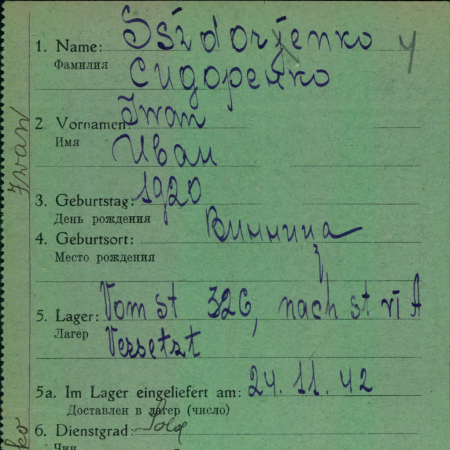 1. Name: Ssidorjenko
Фамилия Сидоренко
2. Vornamen: Iwan
Имя Иван
3. Geburtstag: 1920
День рождения
4. Geburtsort: Винница
Место рождения
5. Lager: Vom st 326, nach st. VI A
Лагер Versetzt
5a. Im Lager eingeliefert am: 24. 11. 42
Доставлен в лагер (число)
6. Dienstgrad: Sold
Чин
Iwan
ko